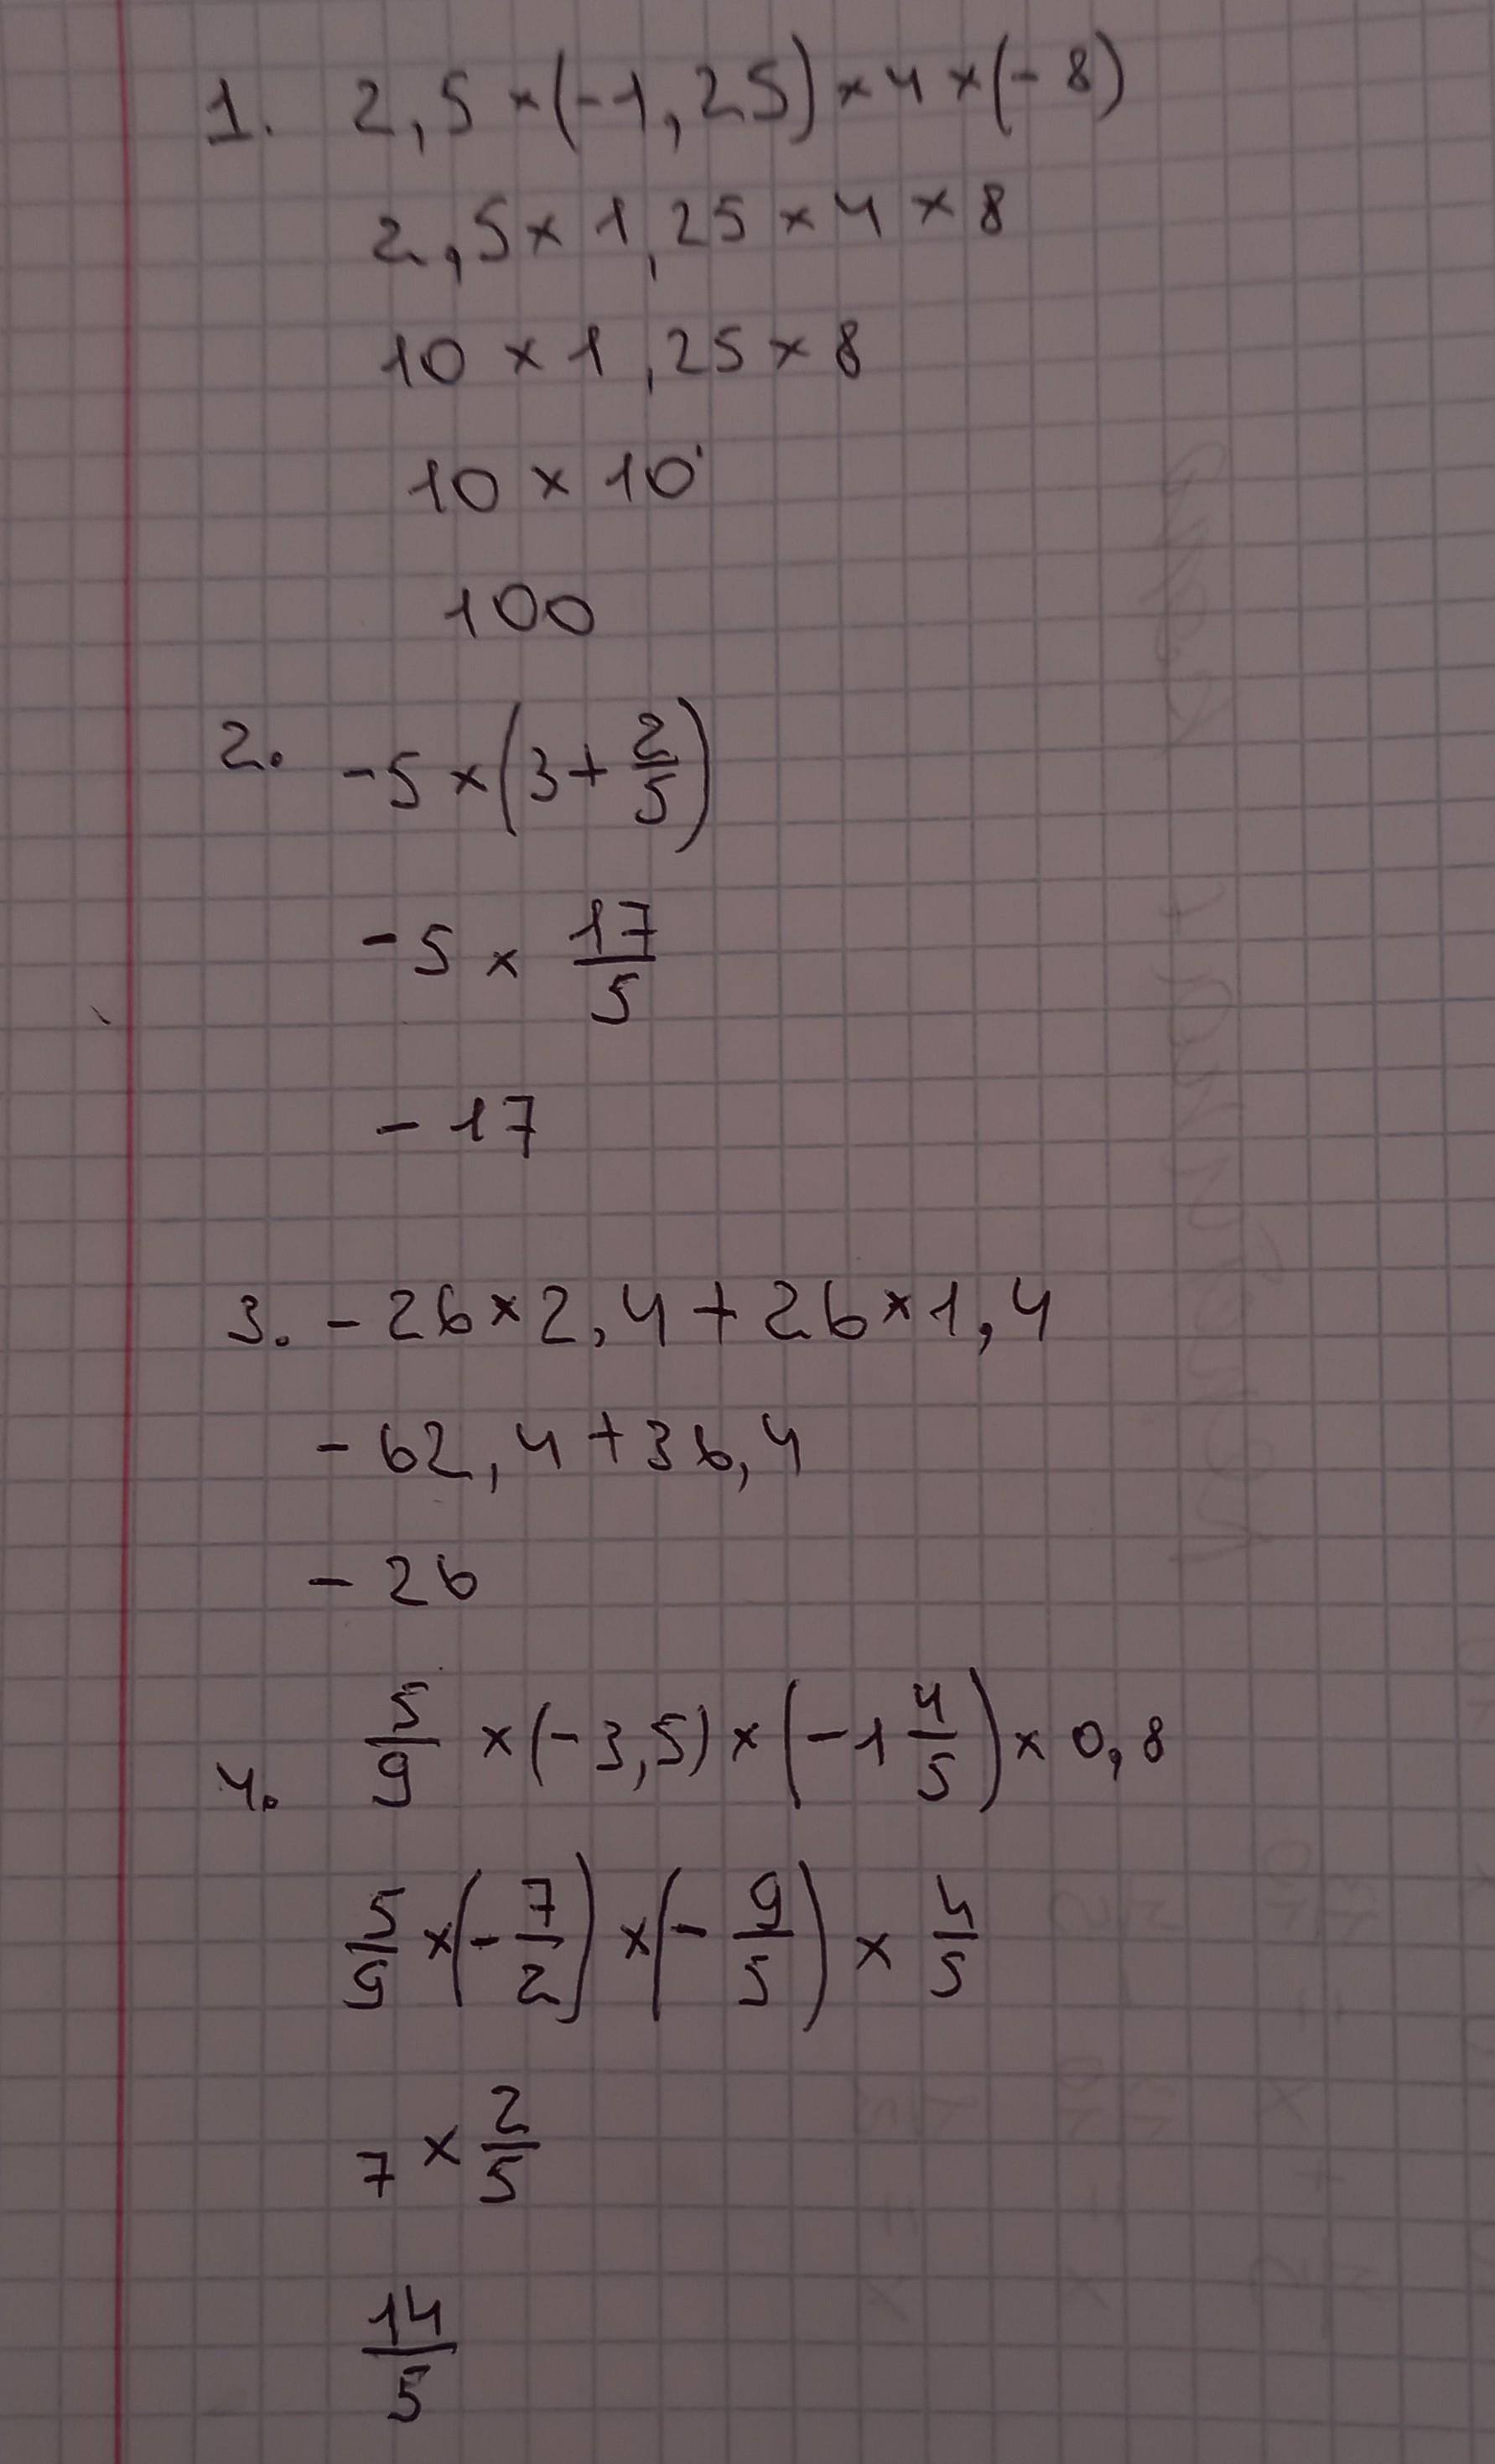 1. 2,5 × (-1,25) × 4 × (-8)
2,5 × 1,25 × 4 × 8
10 × 1,25 × 8
10 × 10
100
2. -5 × (3 + 2/5)
-5 × 17/5
-17
3. -26 × 2,4 + 26 × 1,4
-62,4 + 36,4
-26
4. 5/9 × (-3,5) × (-1 4/5) × 0,8
5/9 × (-7/2) × (-9/5) × 4/5
7 × 2/5
14/5